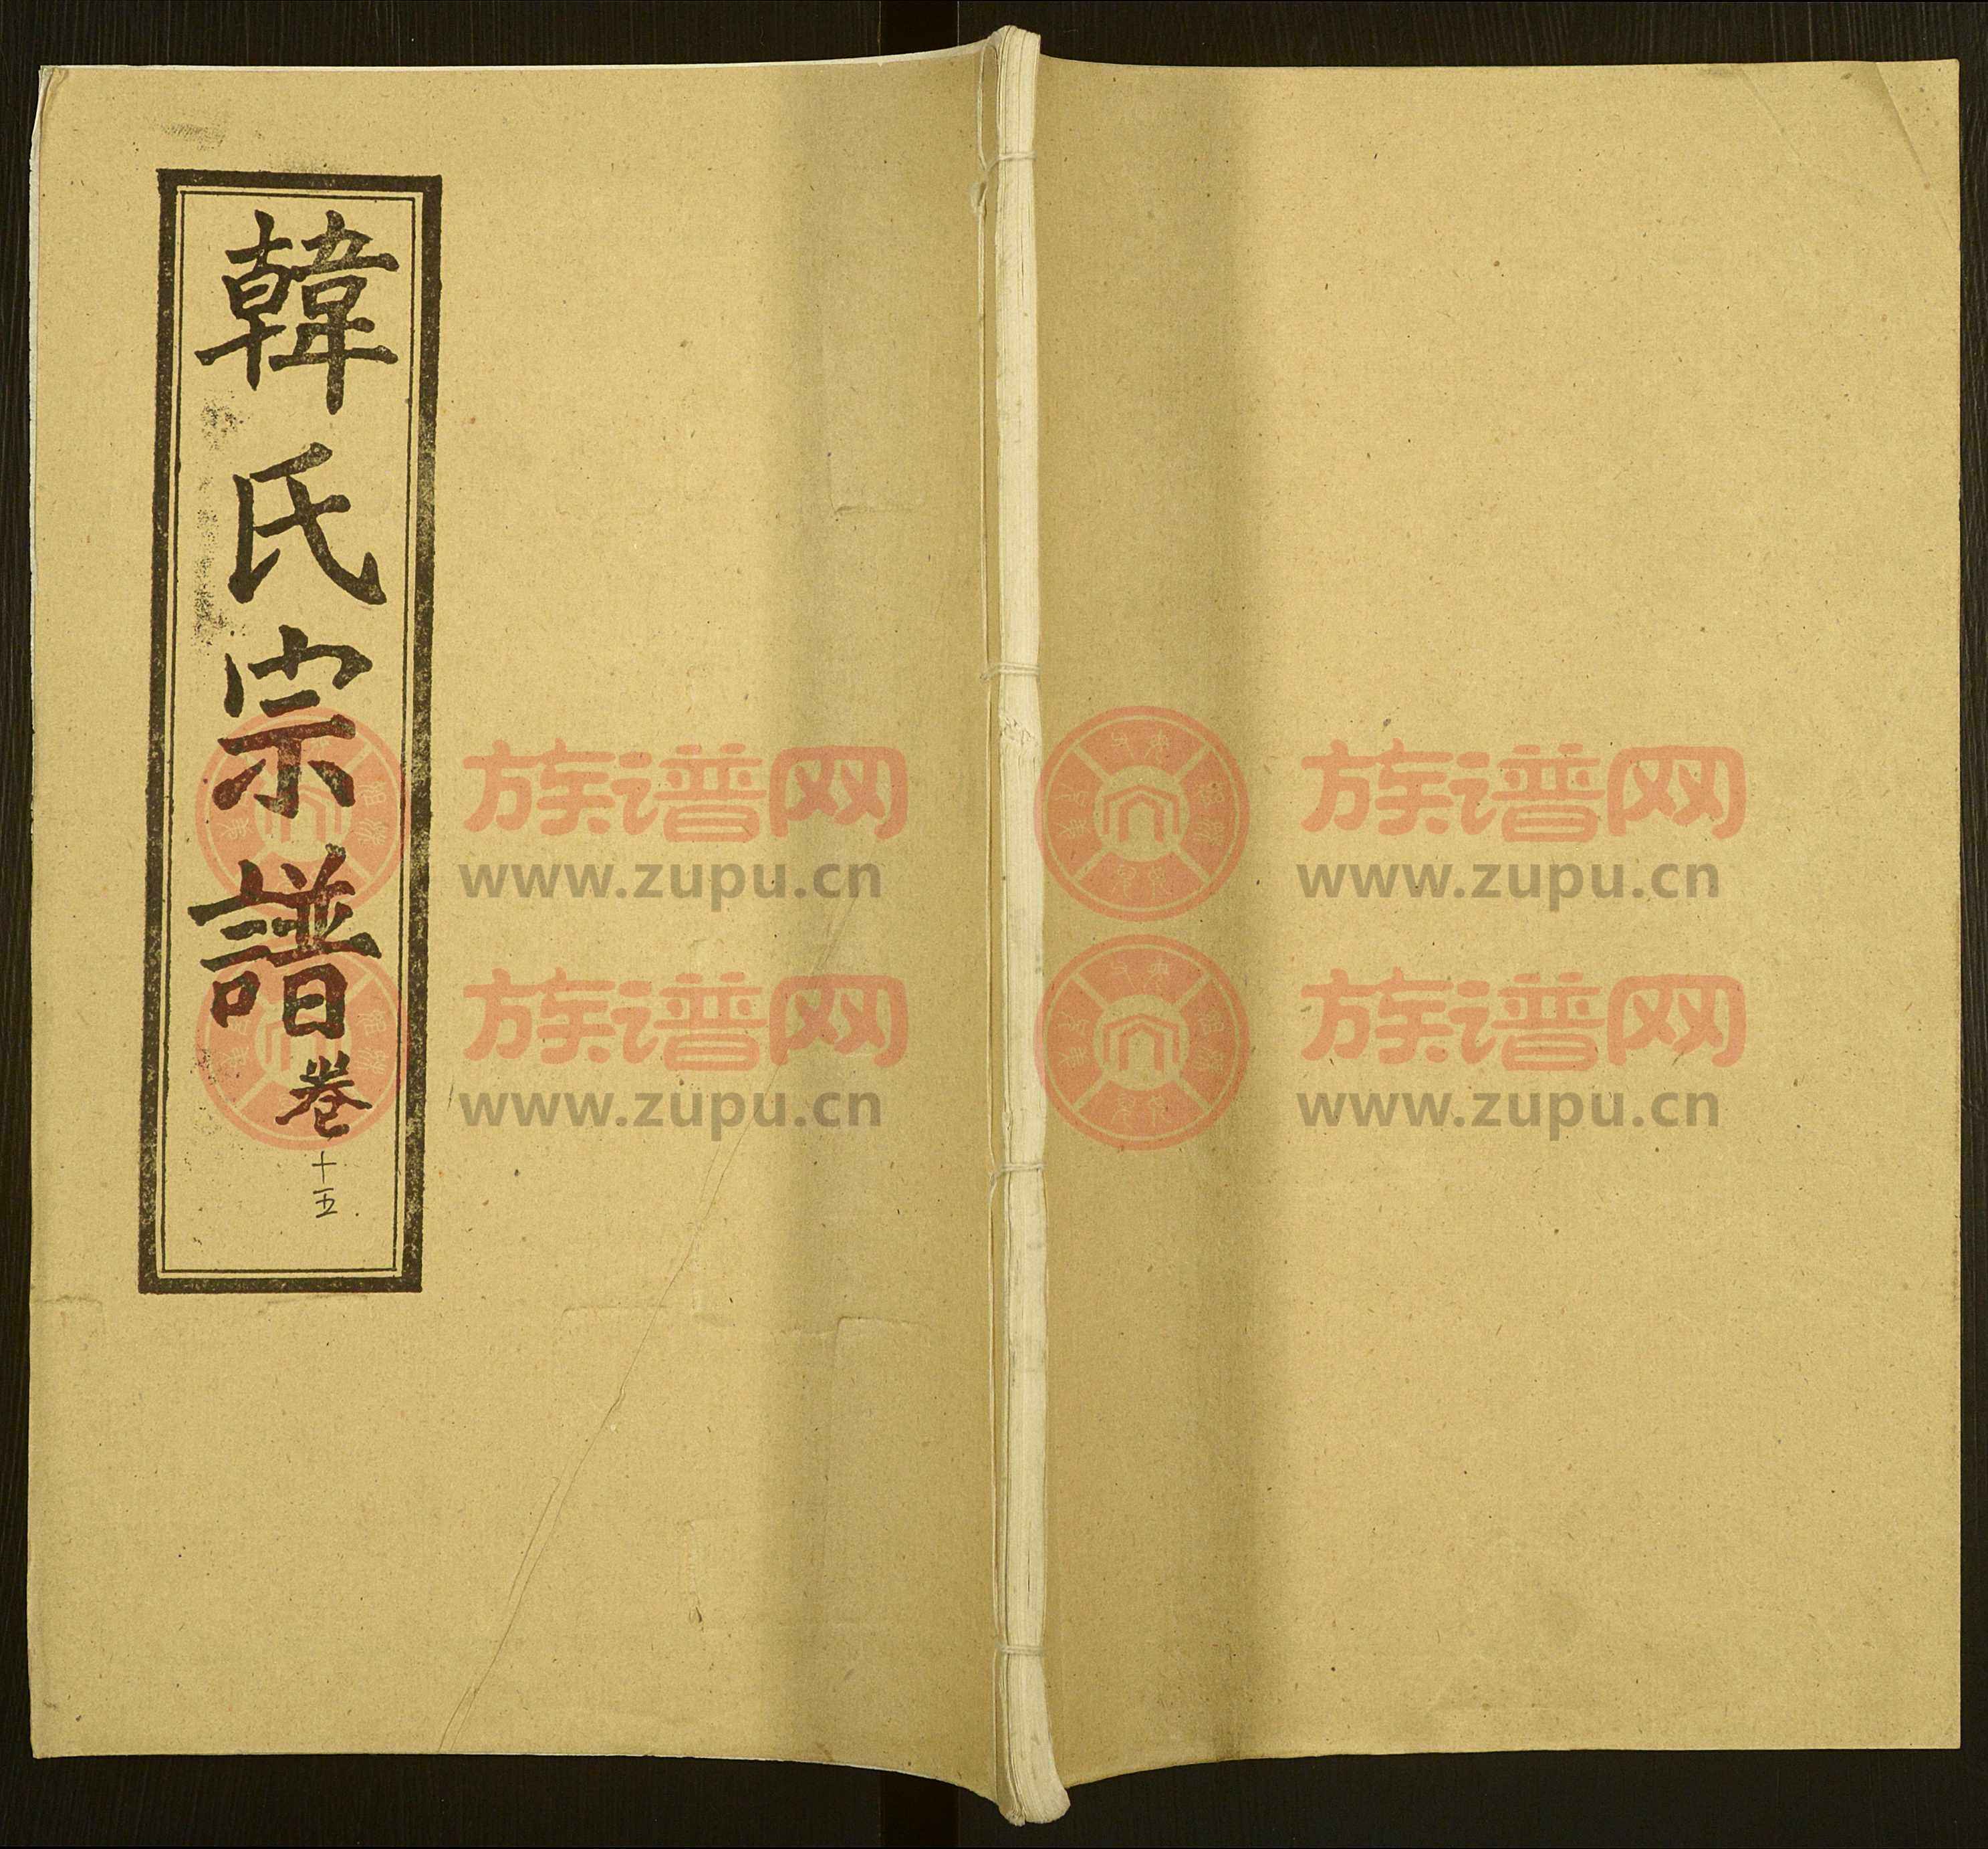 韓氏宗譜卷十五
族谱网
www.zupu.cn
族谱网
www.zupu.cn
族谱网
www.zupu.cn
族谱网
www.zupu.cn